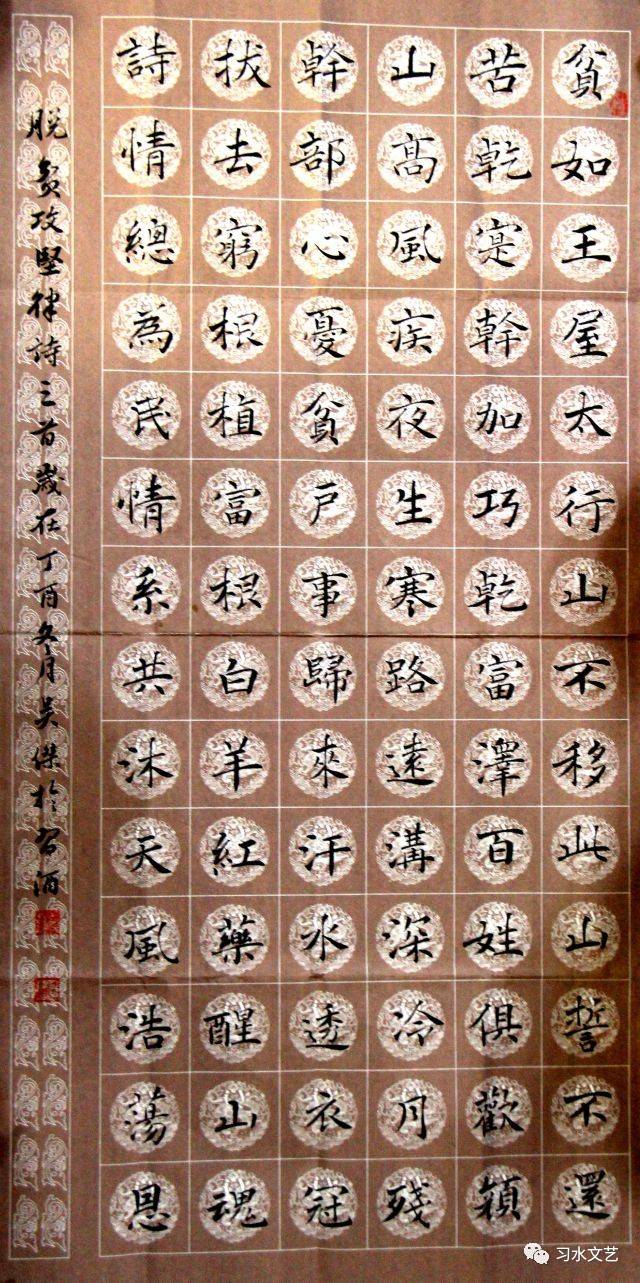 貧如王屋太行山不移此山誓不還
苦乾寔幹加巧乾富澤百姓俱歡顏
山髙風疾夜生寒路遠溝深冷月殘
幹部心憂貧戶事歸來汗水透衣冠
拔去窮根植富根白羊紅藥醒山魂
詩情總為民情系共沐天風浩蕩恩
脱貧攻堅律詩三首歲在丁酉冬月吳傑於習酒
习水文艺